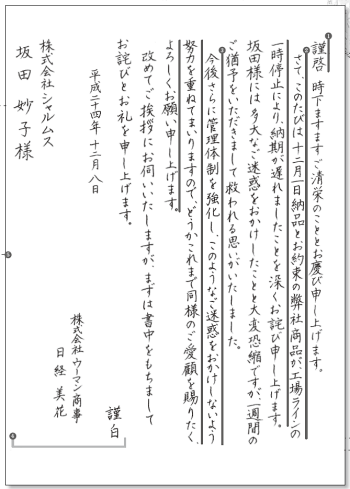 謹啓　時下ますますご清栄のこととお慶び申し上げます。
さて、このたびは十二月一日納品とお約束の弊社商品が、工場ラインの
一時停止により、納期が遅れましたことを深くお詫び申し上げます。
坂田様には多大なご迷惑をおかけしたことと大変恐縮ですが、一週間の
ご猶予をいただきまして救われる思いがいたしました。
今後さらに管理体制を強化し、このようなご迷惑をおかけしないよう
努力を重ねてまいりますので、どうかこれまで同様のご愛顧を賜りたく、
よろしくお願い申し上げます。
改めてご挨拶にお伺いいたしますが、まずは書中をもちまして
お詫びとお礼を申し上げます。
謹白
平成二十四年　十二月八日
株式会社ウーマン商事
日経　美花
株式会社シャルムス
坂田　妙子様